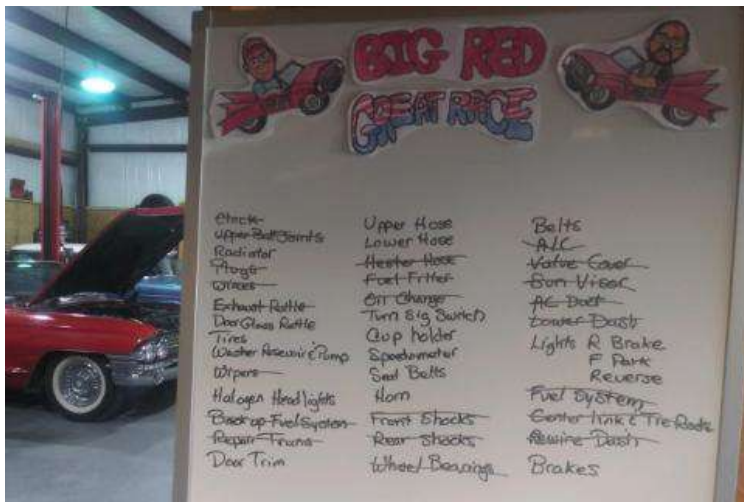 BIG RED
GREAT RACE
Clock
Upper Ball Joints
Radiator
Plugs
Wires
Exhaust Rattle
Door Glass Rattle
Tires
Washer Reservoir & Pump
Wipers
Halogen Headlights
Back up Fuel System
Repair Trunk
Door Trim
Upper Hose
Lower Hose
Heater Hose
Fuel Filter
Oil Change
Turn Sig Switch
Cup holder
Speedometer
Seat Belts
Horn
Front Shocks
Rear Shocks
Wheel Bearings
Belts
A/C
Valve Cover
Sun Visor
AC Duct
Lower Dash
Lights R Brake
F Park
Reverse
Fuel System
Center link & Tie Rods
Rewire Dash
Brakes